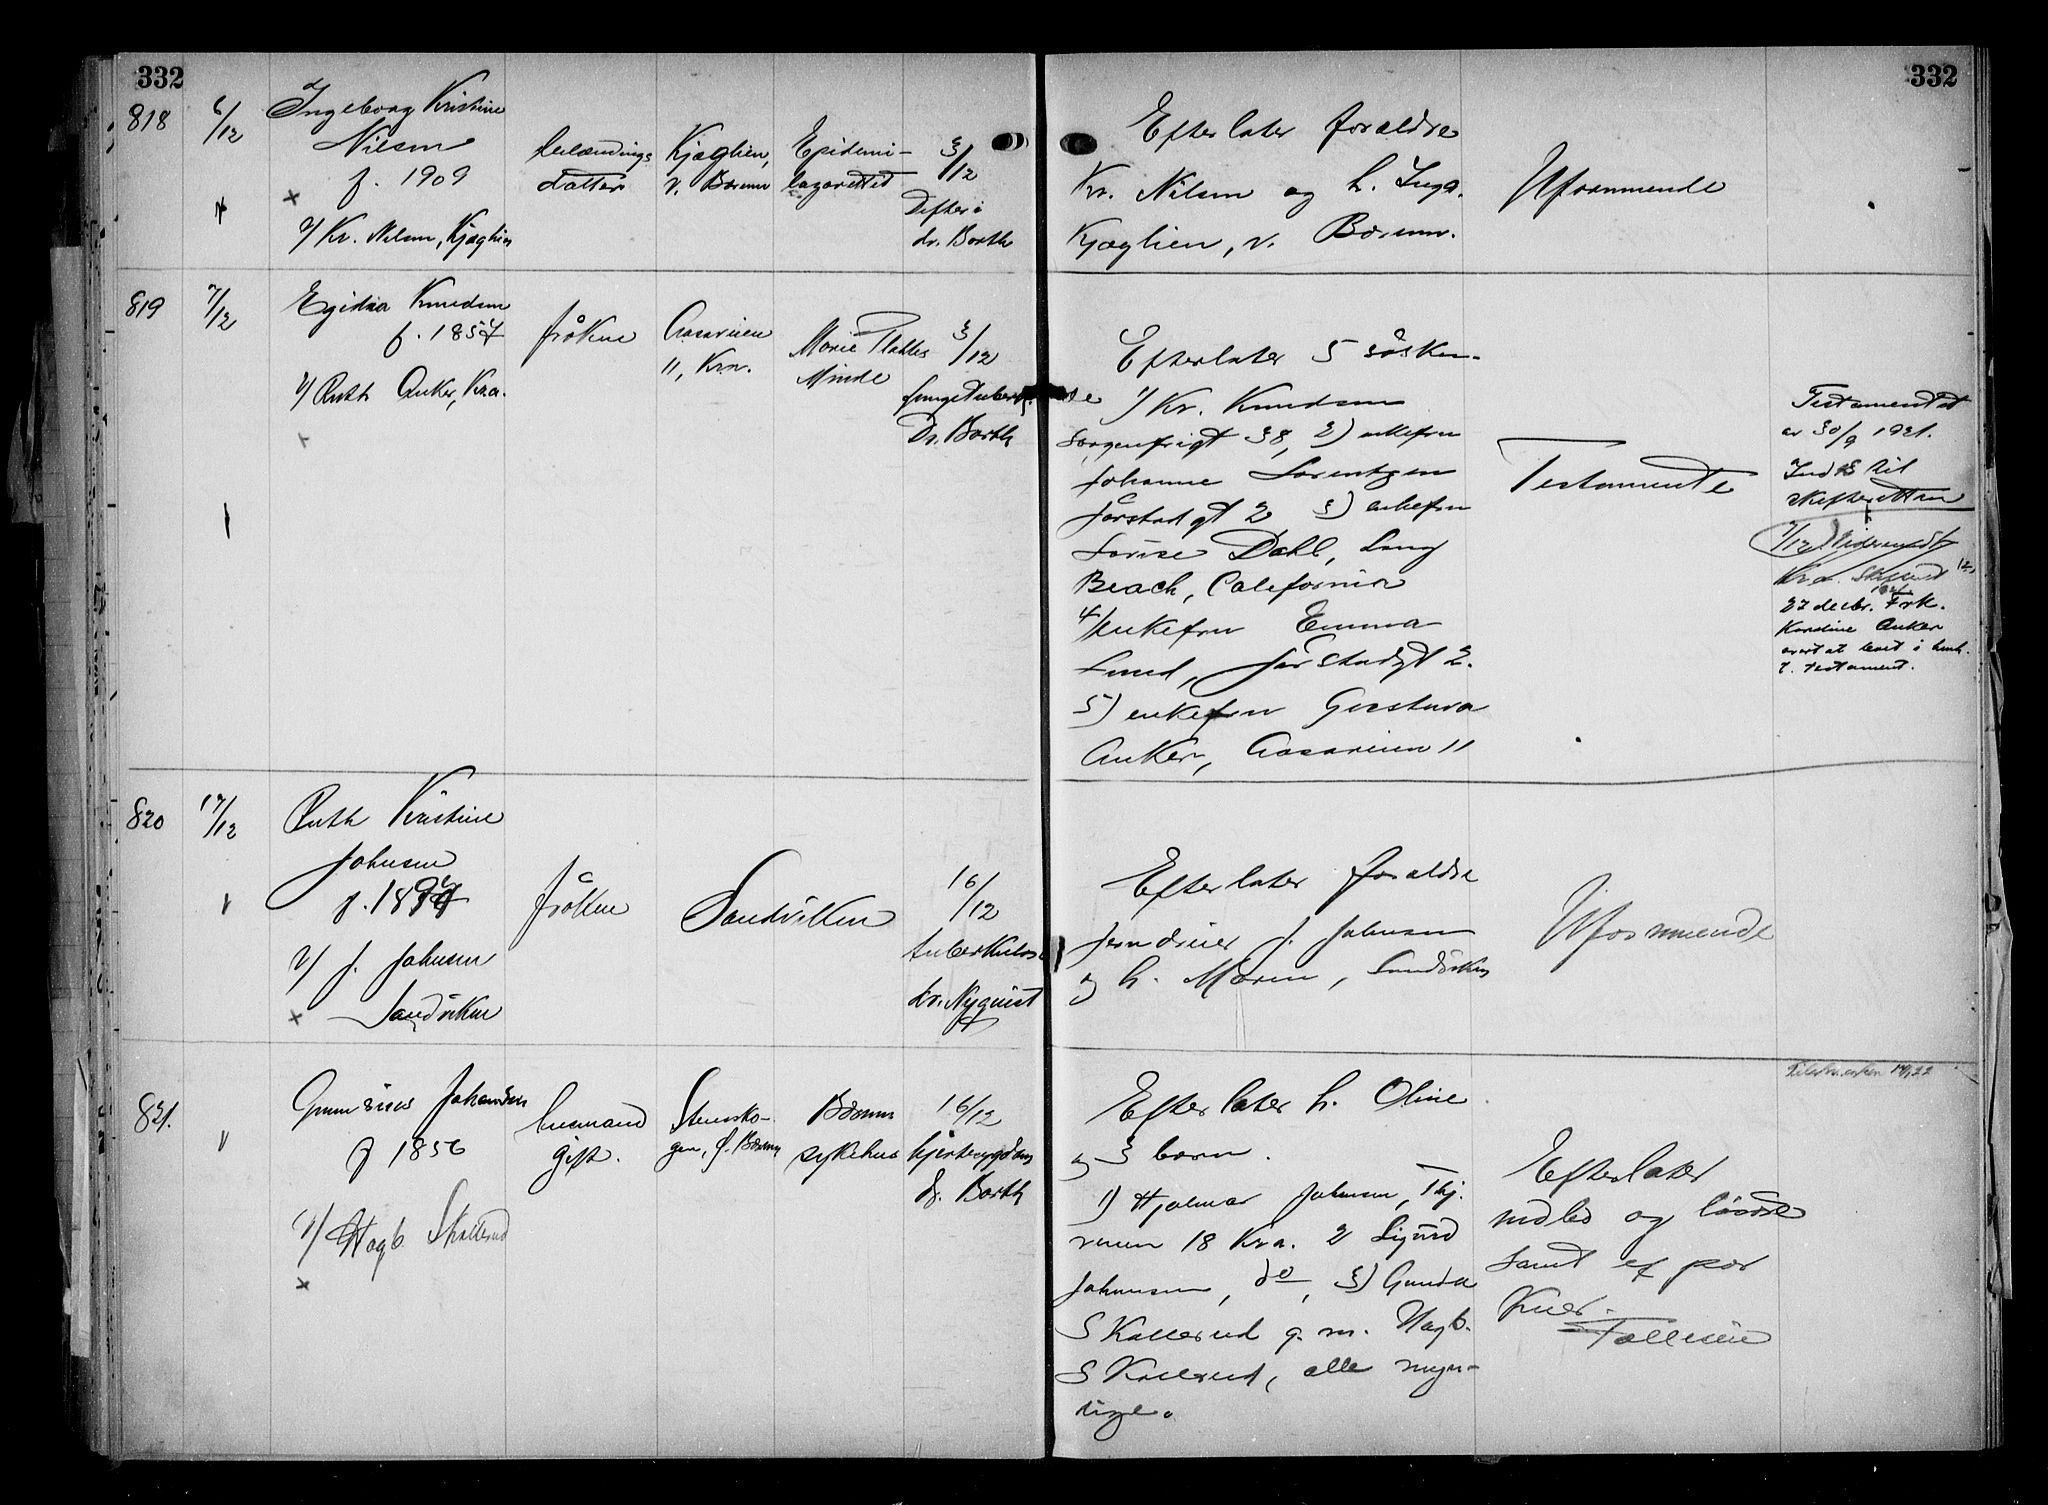 332
818
6/12
Ingeborg Kristine
Nilsen
f. 1909
v/ Kr. Nilsen, Kjaglien
datter
Kjaglien,
v. Bærum
Epidemi-
lazarettet
3/12
Difteri
dr. Barth
819
7/12
Egidia Knudsen
f. 1857
v/ Ruth Anker, Kra.
frøken
Aasveien
11, Kra.
Marie Plahtes
Minde
3/12
Dr. Barth
820
17/12
Ruth Kristine
Johnsen
v/ J. Johnsen
Sandviken
frøken
Sandviken
16/12
tuberkulose
dr. Nyquist
821.
Johansen
f 1856
v/ Hagb. Skallerud
husmand
gift.
Stensko-
gen, Ø. Bærum
Bærum
sykehus
16/12
dr. Barth
332
Efterlater forældre
Kr. Nilsen og h. Inga.
Kjaglien, v. Bærum.
Uformuende
Efterlater 5 søsken
1/ Kr. Knudsen
Sorgenfrigt 38, 2) enkefru
Johanne Lorentzen
Jørstadgt 2 3) enkefru
Lovise Dahl, Long
Beach, California
4/ enkefru Emma
Lund, Jørstadgt 2.
5) enkefru Gustava
Anker, Aasveien 11
Testamente
Testamentet
av 30/9 1921.
Inds til
skifteretten
7/12
27 decbr. Frk.
Anker
t. testament.
Efterlater forældre
J. Johnsen
og h. Maren, Sandviken
Uformuende
Efterlater h. Oline
og 3 barn.
1) Hjalmar Johnsen, Thj.
veien 18 Kra. 2 Sigurd
Johansen, do, 3) Gunda
Skallerud g. m. Hagb.
Skallerud, alle myn-
dige.
Efterlater
indbo og løsøre
samt et par
kuer.